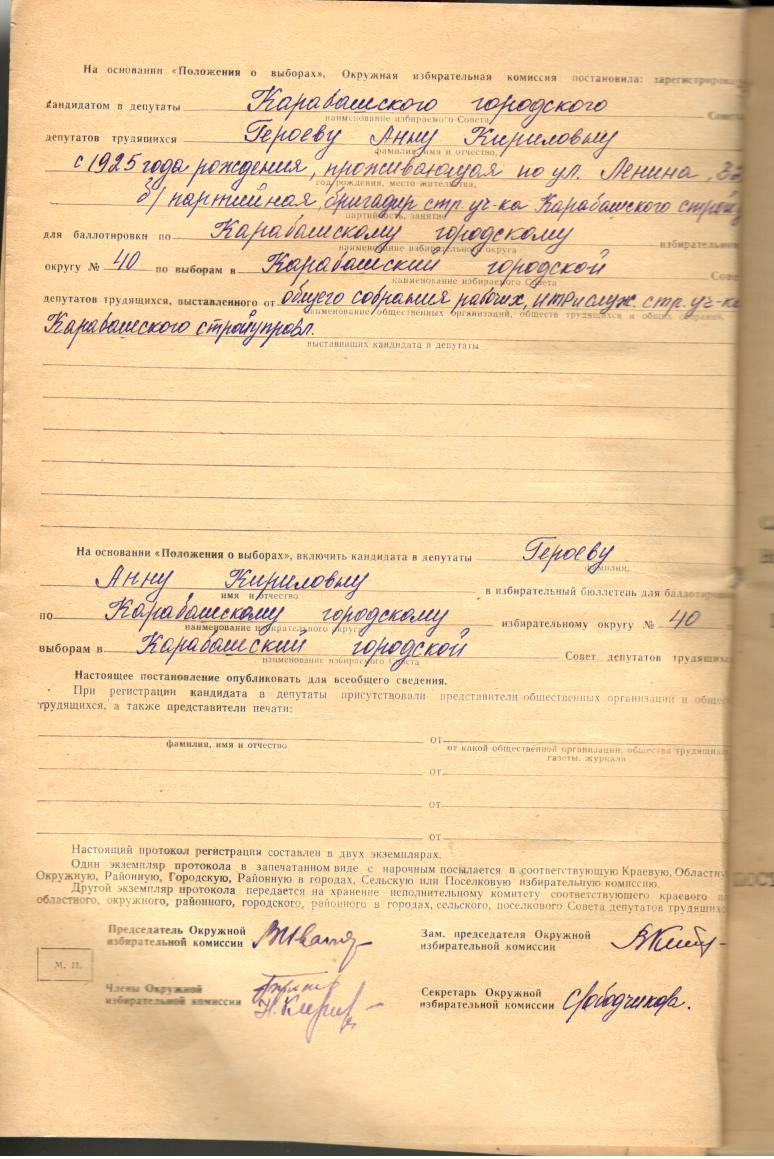 На основании «Положения о выборах», Окружная избирательная комиссия постановила: зарегистрирова
кандидатом в депутаты Карабашского городского Сове
наименование избираемого Совета
депутатов трудящихся Героеву Анну Кириловну
фамилия, имя и отчество,
с 1925 года рождения, проживающая по ул. Ленина, 32
год рождения, место жительства,
б/партийная, бригадир стр. уч-ка Карабашского строй
партийность, занятие
для баллотировки по Карабашскому городскому избирательном
наименование избирательного округа
округу № 40 по выборам в Карабашский городской Сове
наименование избираемого Совета
депутатов трудящихся, выставленного от общего собрания рабочих, ИТР и служ. стр. уч-ка
наименование общественных организаций, обществ трудящихся и общих собраний,
Карабашского стройуправл.
выставивших кандидата в депутаты
На основании «Положения о выборах», включить кандидата в депутаты Героеву
фамилия,
Анну Кириловну в избирательный бюллетень для баллотиров
имя и отчество
по Карабашскому городскому избирательному округу № 40
наименование избирательного округа
выборам в Карабашский городской Совет депутатов трудящихс
наименование избираемого Совета
Настоящее постановление опубликовать для всеобщего сведения.
При регистрации кандидата в депутаты присутствовали представители общественных организаций и общес
трудящихся, а также представители печати:
от
фамилия, имя и отчество от какой общественной организации, общества трудящихс
газеты, журнала
от
от
от
Настоящий протокол регистрации составлен в двух экземплярах.
Один экземпляр протокола в запечатанном виде с нарочным посылается в соответствующую Краевую, Областну
Окружную, Районную, Городскую, Районную в городах, Сельскую или Поселковую избирательную комиссию.
Другой экземпляр протокола передается на хранение исполнительному комитету соответствующего краевого
областного, окружного, районного, городского, районного в городах, сельского, поселкового Совета депутатов трудящихс
Председатель Окружной Зам. председателя Окружной
избирательной комиссии избирательной комиссии
М. П.
Члены Окружной Секретарь Окружной
избирательной комиссии избирательной комиссии